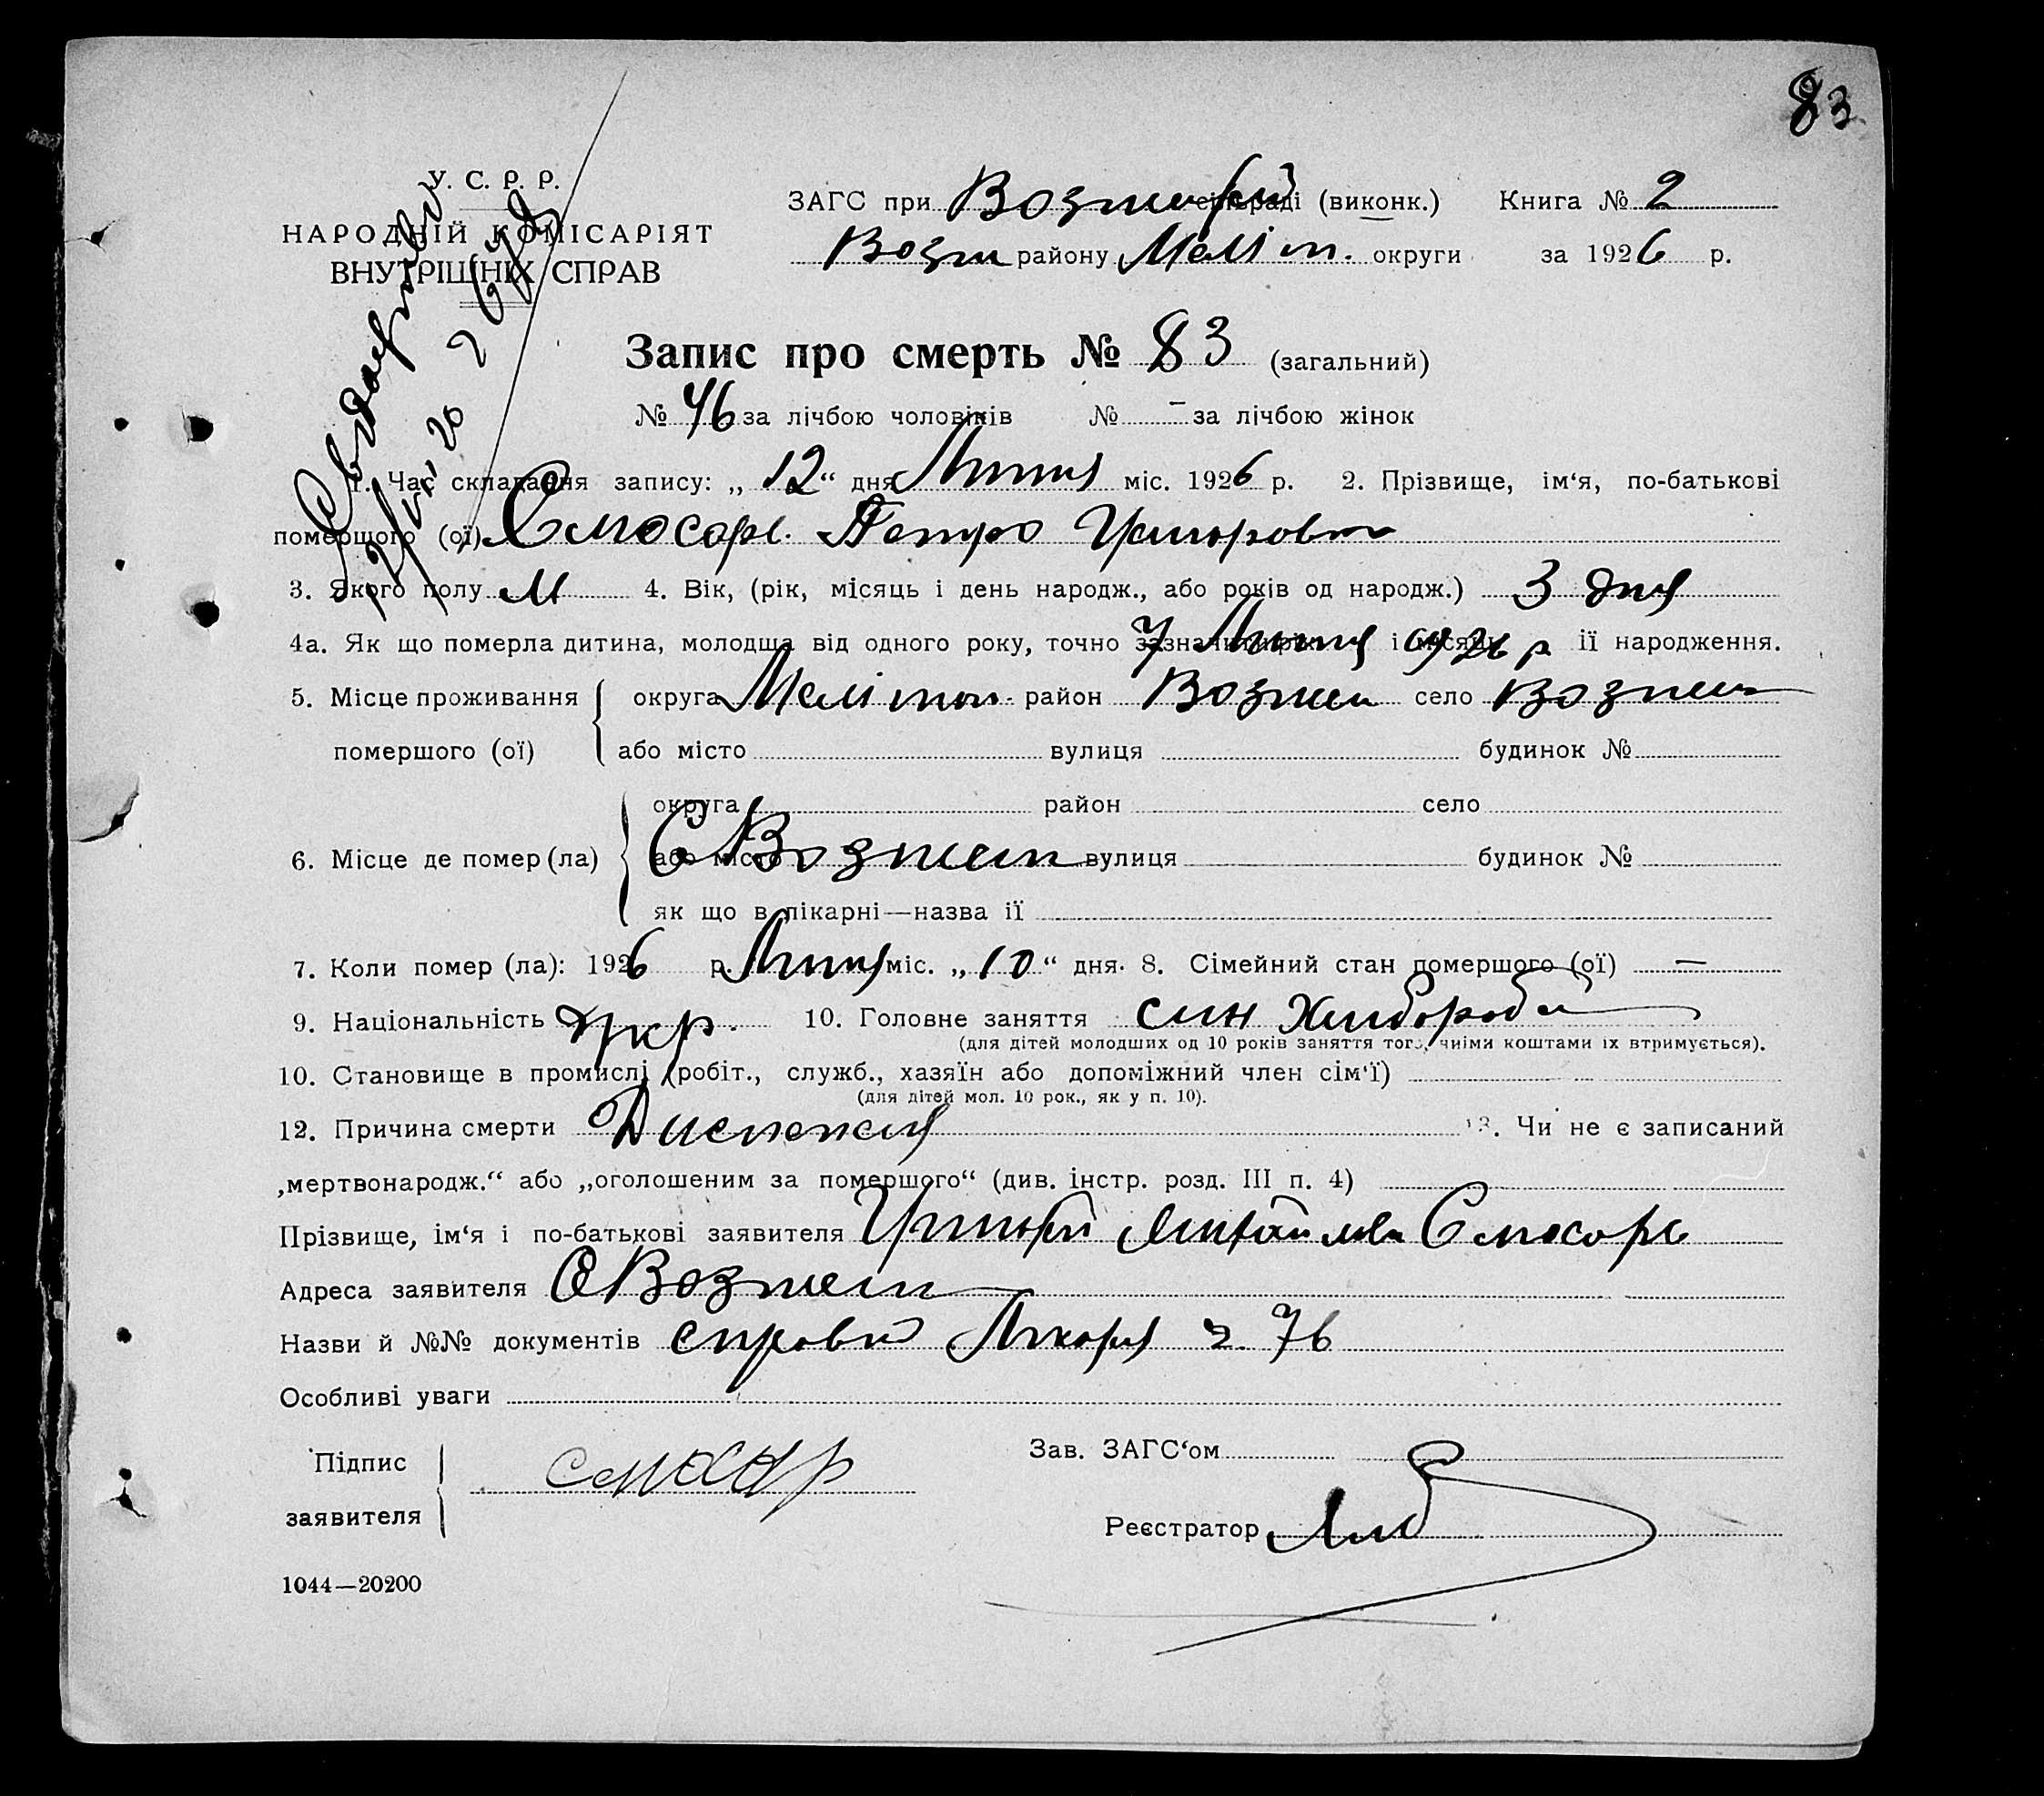 83
У. С. Р. Р.
НАРОДНІЙ КОМІСАРІЯТ
ВНУТРІШНІХ СПРАВ
ЗАГС при сільраді (виконк.) Книга № 2
Возн району Меліт. округи за 1926 р.
Запис про смерть № 83 (загальний)
№ 46 за лічбою чоловіків № – за лічбою жінок
1. Час складання запису: „ 12 “ дня Липня міс. 1926 р. 2. Прізвище, ім‘я, по-батькові
помершого (ої) Слюсарь Петро
3. Якого полу М 4. Вік, (рік, місяць і день народж., або років од народж.) 3 дня
4а. Як що померла дитина, молодша від одного року, точно 7 Липня 1926 р її народження.
5. Місце проживання округа Мелітоп. район Вознесен село Вознесен
помершого (ої) або місто вулиця будинок №
округа район село
6. Місце де помер (ла) або місто С Вознесен вулиця будинок №
як що в лікарні—назва її
7. Коли помер (ла): 1926 р. Липня міс. „ 10 “ дня. 8. Сімейний стан помершого (ої) —
9. Національність Укр. 10. Головне заняття син Хлібороба
(для дітей молодших од 10 років заняття того, чиїми коштами їх втримується).
10. Становище в промислі (робіт., служб., хазяїн або допоміжний член сім‘ї)
(для дітей мол. 10 рок., як у п. 10).
12. Причина смерти Диспепсия 13. Чи не є записаний
„мертвонародж.“ або „оголошеним за помершого“ (див. інстр. розд. III п. 4)
Прізвище, ім‘я і по-батькові заявителя Слюсарь
Адреса заявителя С Вознесен
Назви й №№ документів справка Лікаря ч. 76
Особливі уваги
Підпис
заявителя
Слюсар
Зав. ЗАГС‘ом
Реєстратор
1044—20200